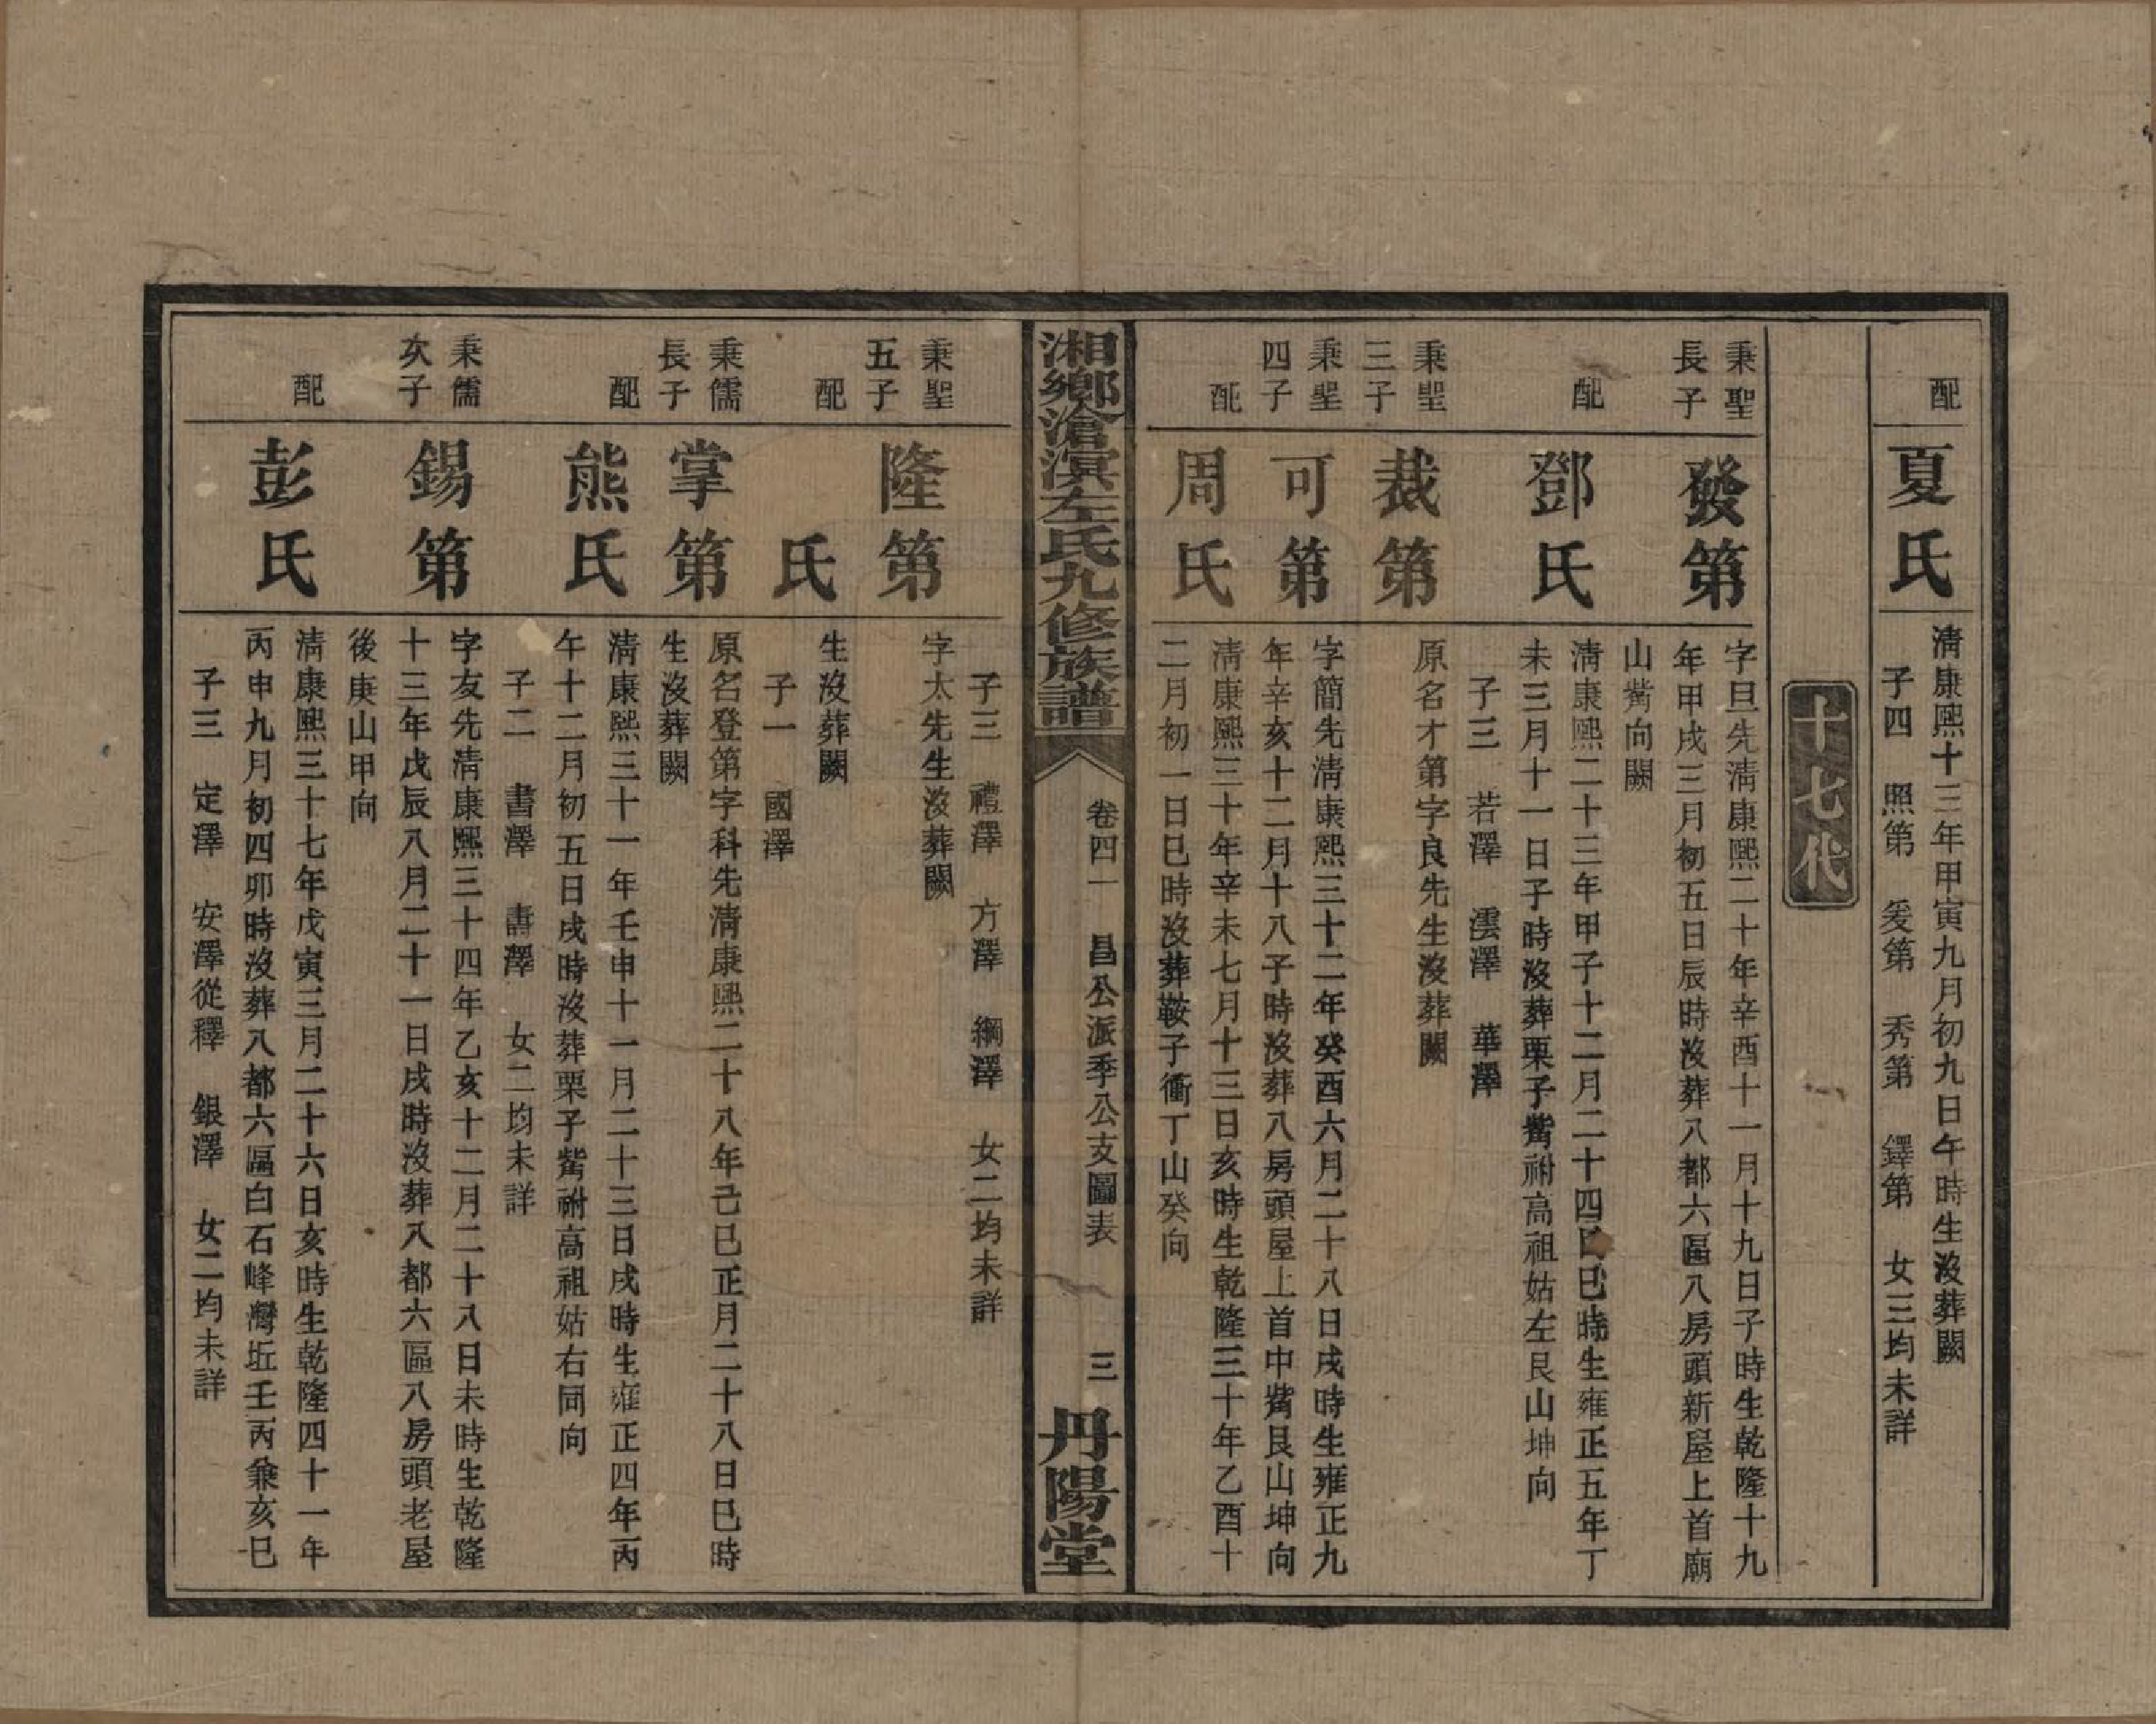 配
夏氏
清康熙十三年甲寅九月初九日午時生沒葬闕
子四　照第　爰第　秀第　鐸第　女三均未詳
十七代
秉聖
長子
發第
字旦先清康熙二十年辛酉十一月十九日子時生乾隆十九
年甲戌三月初五日辰時沒葬八都六區八房頭新屋上首廟
山觜向闕
配
鄧氏
清康熙二十三年甲子十二月二十四日巳時生雍正五年丁
未三月十一日子時沒葬栗子觜祔高祖姑左艮山坤向
子三　若澤　澐澤　華澤
秉聖
三子
裁第
原名才第字良先生沒葬闕
秉聖
四子
可第
字簡先清康熙三十二年癸酉六月二十八日戌時生雍正九
年辛亥十二月十八子時沒葬八房頭屋上首中觜艮山坤向
配
周氏
清康熙三十年辛未七月十三日亥時生乾隆三十年乙酉十
二月初一日巳時沒葬鞍子衝丁山癸向
湘鄉滄濱左氏九修族譜
卷四一　昌公派季公支圖表　三
丹陽堂
子三　禮澤　方澤　綱澤　女二均未詳
秉聖
五子
隆第
字太先生沒葬闕
配
氏
生沒葬闕
子一　國澤
秉儒
長子
掌第
原名登第字科先清康熙二十八年己巳正月二十八日巳時
生沒葬闕
配
熊氏
清康熙三十一年壬申十一月二十三日戌時生雍正四年丙
午十二月初五日戌時沒葬栗子觜祔高祖姑右同向
子二　書澤　壽澤　女二均未詳
秉儒
次子
錫第
字友先清康熙三十四年乙亥十二月二十八日未時生乾隆
十三年戊辰八月二十一日戌時沒葬八都六區八房頭老屋
後庚山甲向
配
彭氏
清康熙三十七年戊寅三月二十六日亥時生乾隆四十一年
丙申九月初四卯時沒葬八都六區白石峰灣坵壬丙兼亥巳
子三　定澤　安澤從釋　銀澤　女二均未詳